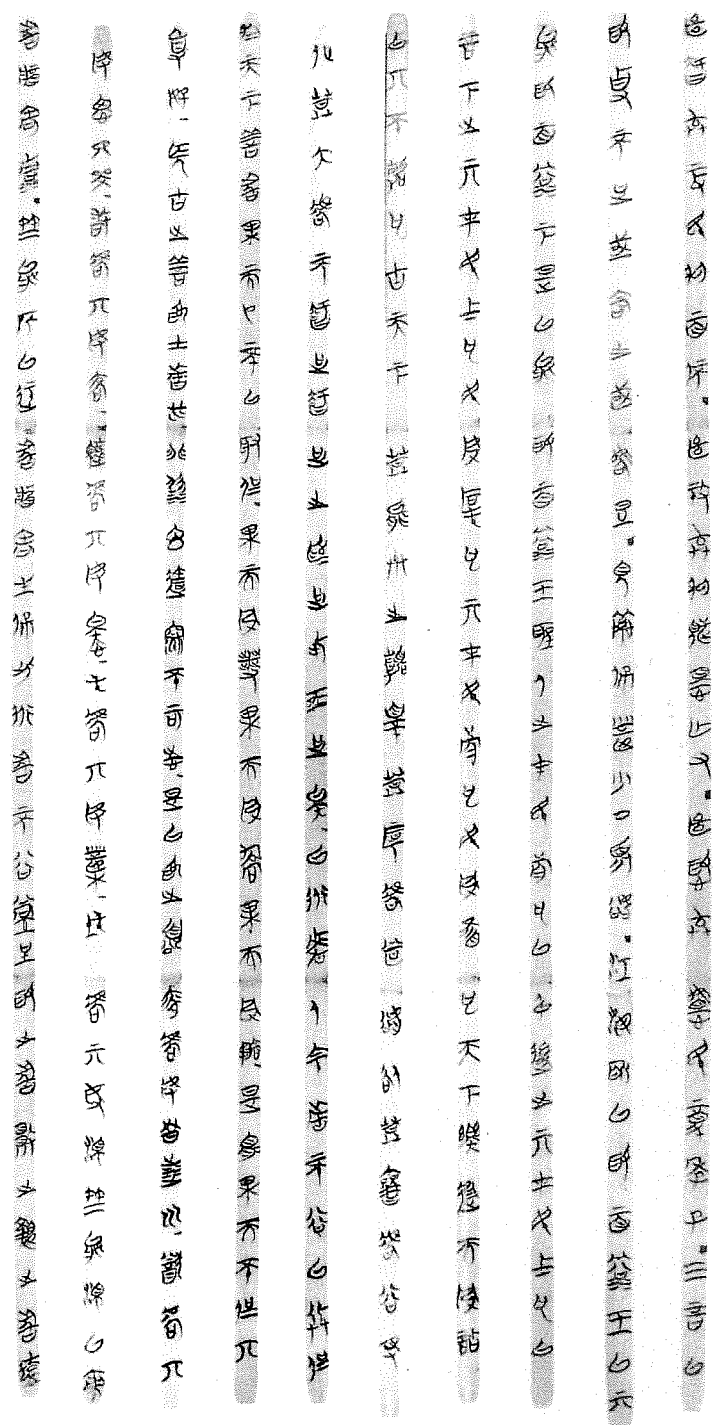 絕智棄辯民利百倍絕巧棄利盜賊亡有絕偽棄慮民復季子三言以
為辨不足或命之或乎屬視素保樸少私寡欲江海所以為百谷王以其
能為百谷下是以能為百谷王聖人之在民前也以身後之其在民上也以
言下之其在民上也民弗厚也其在民前也民弗害也天下樂進而弗詀
以其不爭也古天下莫能與之爭罪莫厚乎甚欲咎莫憯乎欲得
化莫大乎不智足智足之為足此恆足矣以道佐人主者不欲以兵強
於天下善者果而已不以取強果而弗伐果而弗驕果而弗矜是謂果而不強其
事好長古之善為士者必非溺玄達深不可志是以為之頌豫乎若冬涉川猶乎其
若畏四鄰嚴乎其若客渙乎其若釋屯乎其若樸沌乎其若濁竺能濁以靜
者將舍清竺能庀以迬者將舍生保此道者不谷尚呈為之者敗之執之者遠